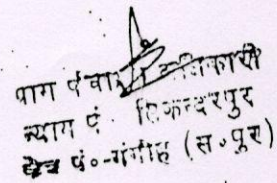 ग्राम पंचायत अधिकारी
न्याय पं. सिकन्दरपुर
क्षेत्र पं०-गंगोह (स०पुर)